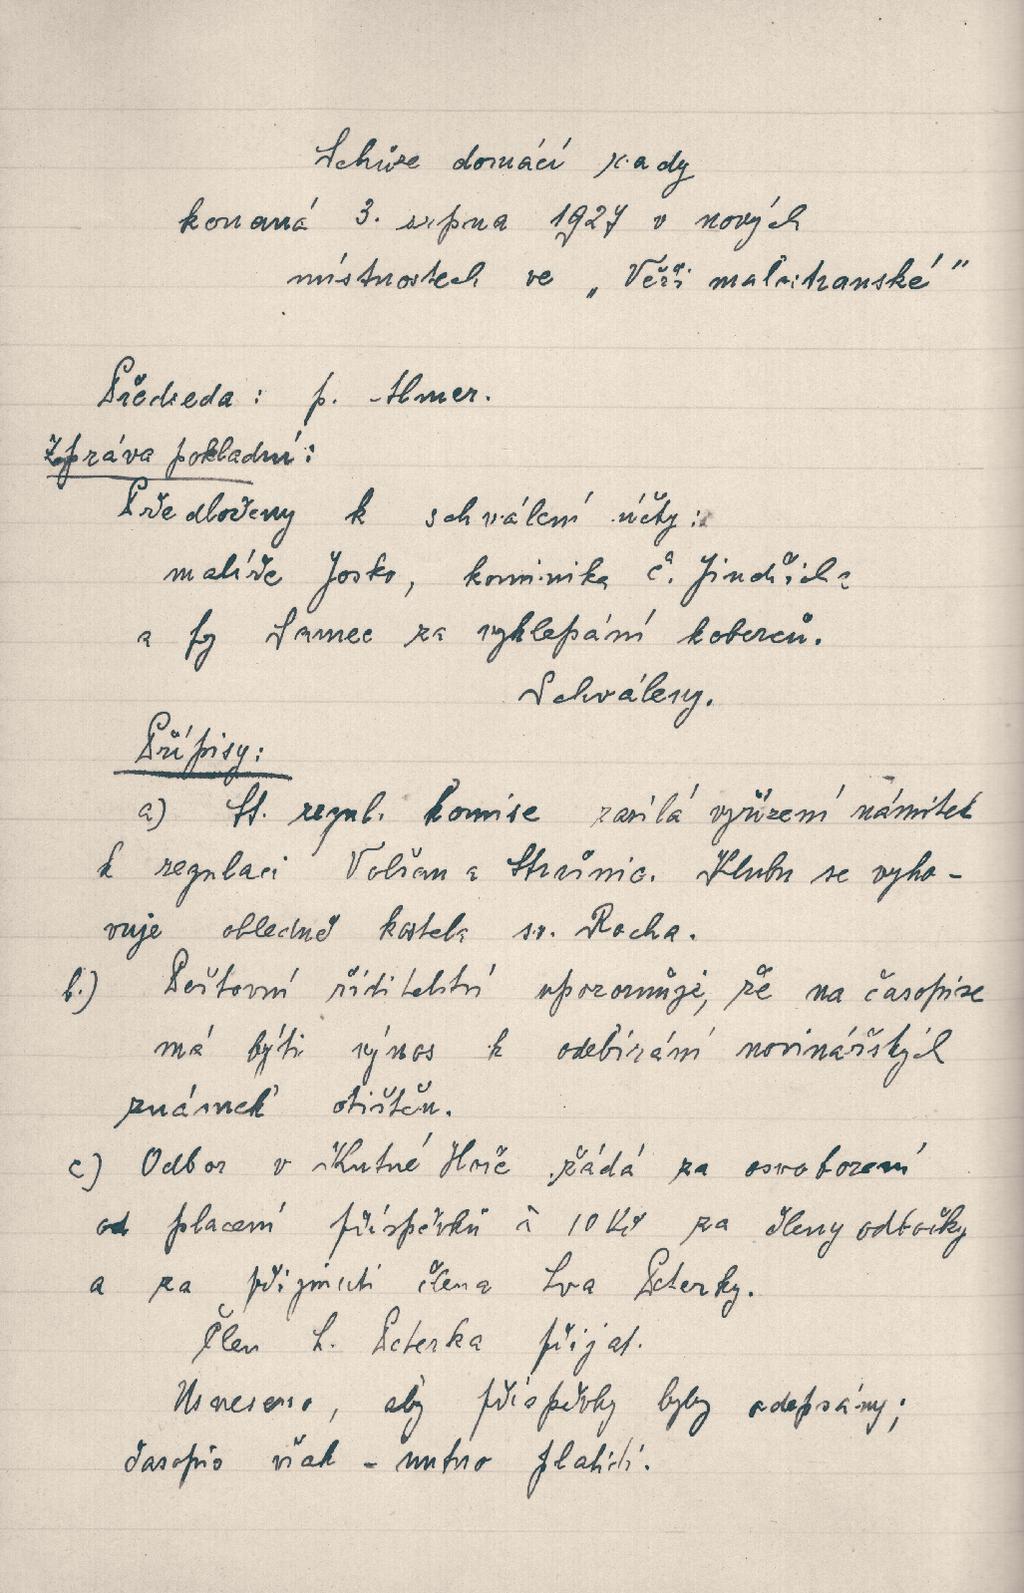 Schůze domácí rady
konaná 3. srpna 1927 v nových
místnostech ve „Věži malostranské"
Předseda: p. Almer.
Zpráva pokladní:
Předloženy k schválení účty:
malíře Josko, kominíka č. Jindřicha
a fy Samec za vyklepání koberců.
Schváleny.
Přípisy:
a) St. regul. komise zasílá vyřízení námitek
k regulaci Volšan a Strašnic. Klubu se vyho-
vuje ohledně kostela sv. Rocha.
b.) Poštovní ředitelství upozorňuje, že na časopise
má býti výnos k odebírání novinářských
známek otištěn.
c) Odbor v Kutné Hoře žádá za osvobození
od placení příspěvků à 10 Kč za členy odbočky
a za přijmutí člena Lva Peterky.
Člen L. Peterka přijat.
Usneseno, aby příspěvky byly odepsány;
časopis však - nutno platiti.